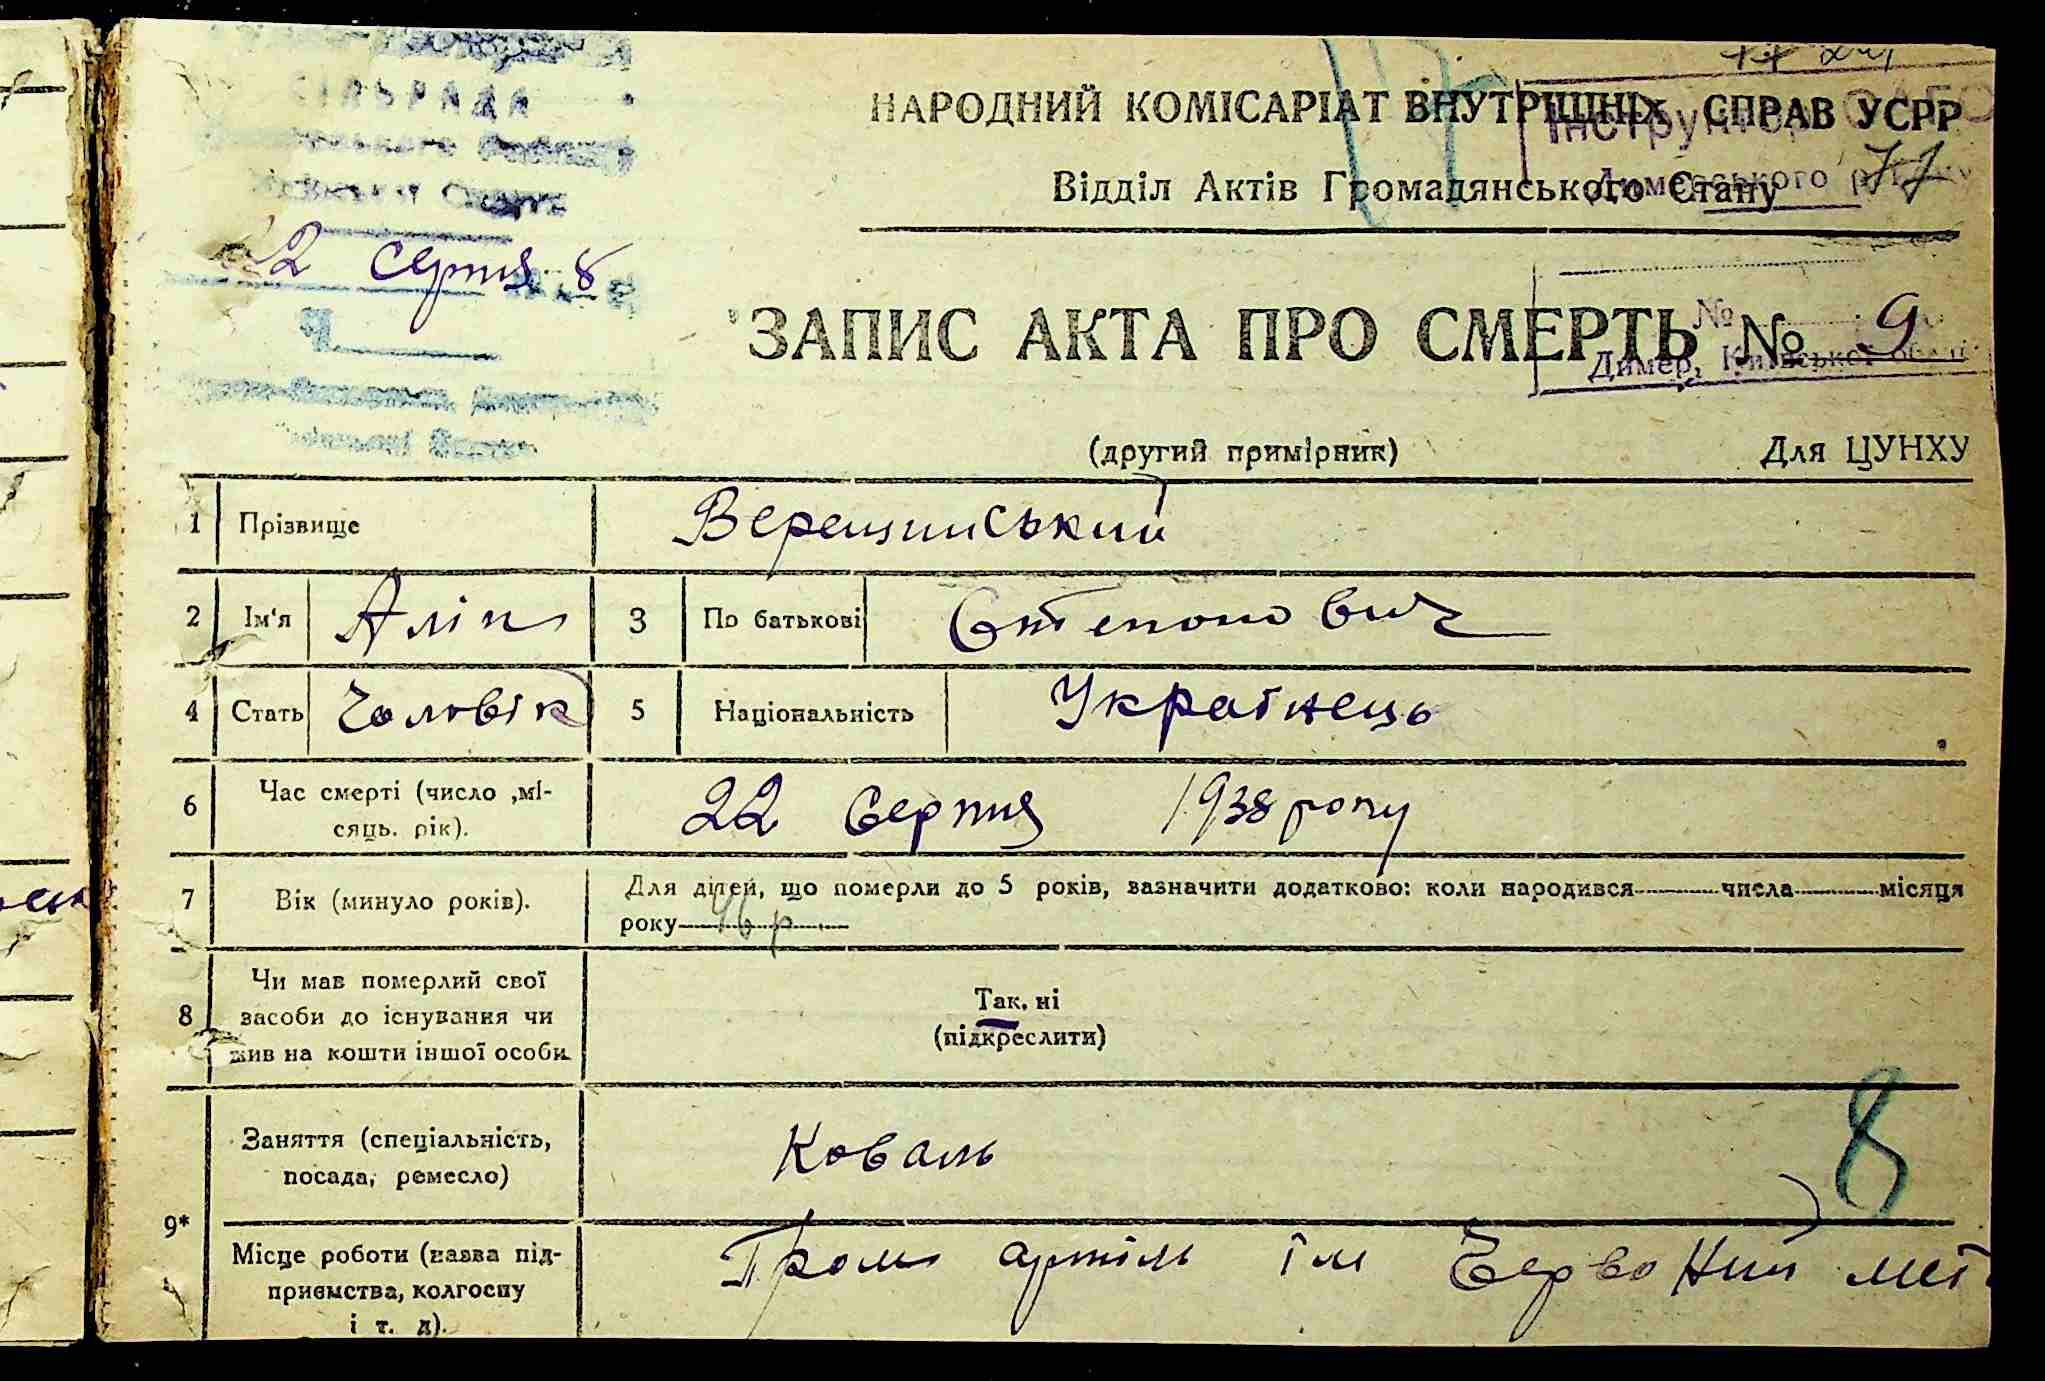 СІЛЬРАДА
НАРОДНИЙ КОМІСАРІАТ ВНУТРІШНІХ СПРАВ УСРР
Інструктор
Відділ Актів Громадянського Стану
77
22 серпня 8
ЗАПИС АКТА ПРО СМЕРТЬ № 9
№
Димер, Київської
(другий примірник) Для ЦУНХУ
1 Прізвище Верещинський
2 Ім'я Аліпі 3 По батькові Степонович
4 Стать Чоловік 5 Національність Українець
6 Час смерті (число ,мі-
сяць. рік).
22 Серпня 1938 року
7 Вік (минуло років).
Для дітей, що померли до 5 років, зазначити додатково: коли народився числа місяця
року 46 р.
8 Чи мав померлий свої
засоби до існування чи
жив на кошти іншої особи.
Так, ні
(підкреслити)
9*
Заняття (спеціальність,
посада, ремесло)
Коваль
8
Місце роботи (назва під-
приємства, колгоспу
і т. д).
Пром артіль ім Червоний мет